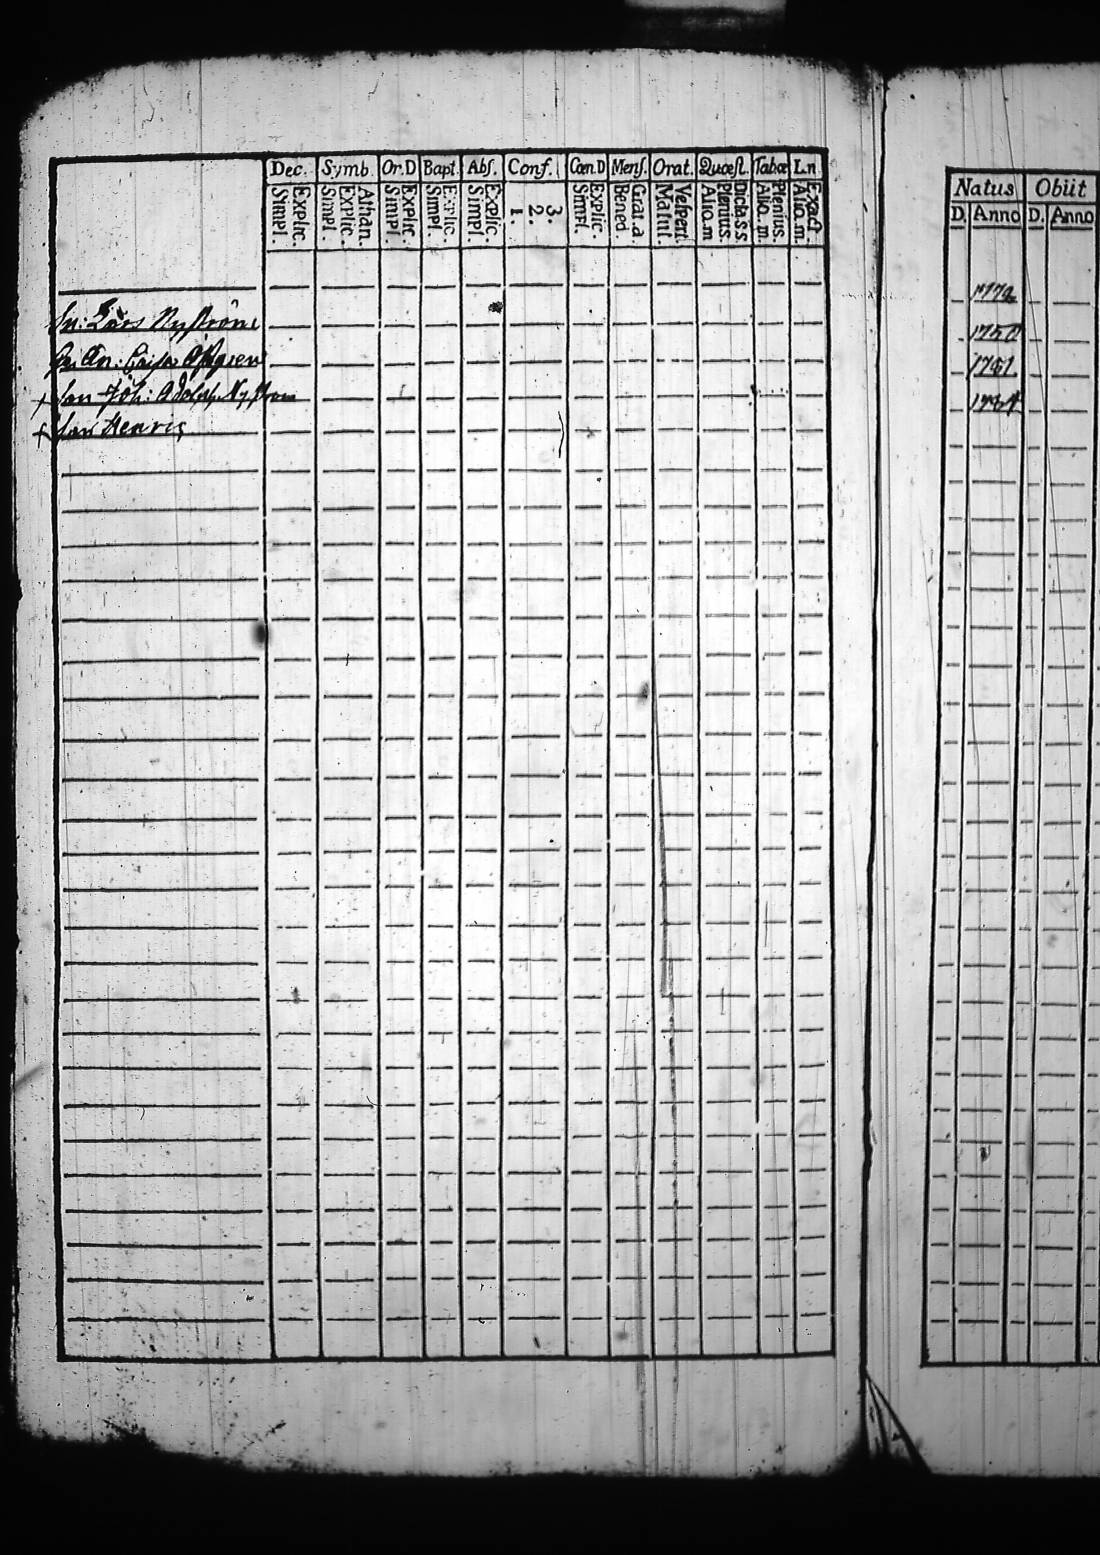 Dec. Symb. Or.D Bapt. Abs. Conf. Cœn.D Mens. Orat. Quæst. Tabœ L.n
Explic. Simpl. Athan. Explic. Simpl. Explic. Simpl. Explic. Simpl. Explic. Simpl. 3. 2. 1. Explic. Simpl. Grat.a Bened. Vespert. Matut. Dicta SS. Plenius. Alio.m Plenius. Alio.m Exact. Alio.m
Lars Nyström
An: Caisa
+ Son Joh: Adolph. Nyström
+ Son Henric
Natus Obiit
D. Anno D. Anno
1750
1781
1784